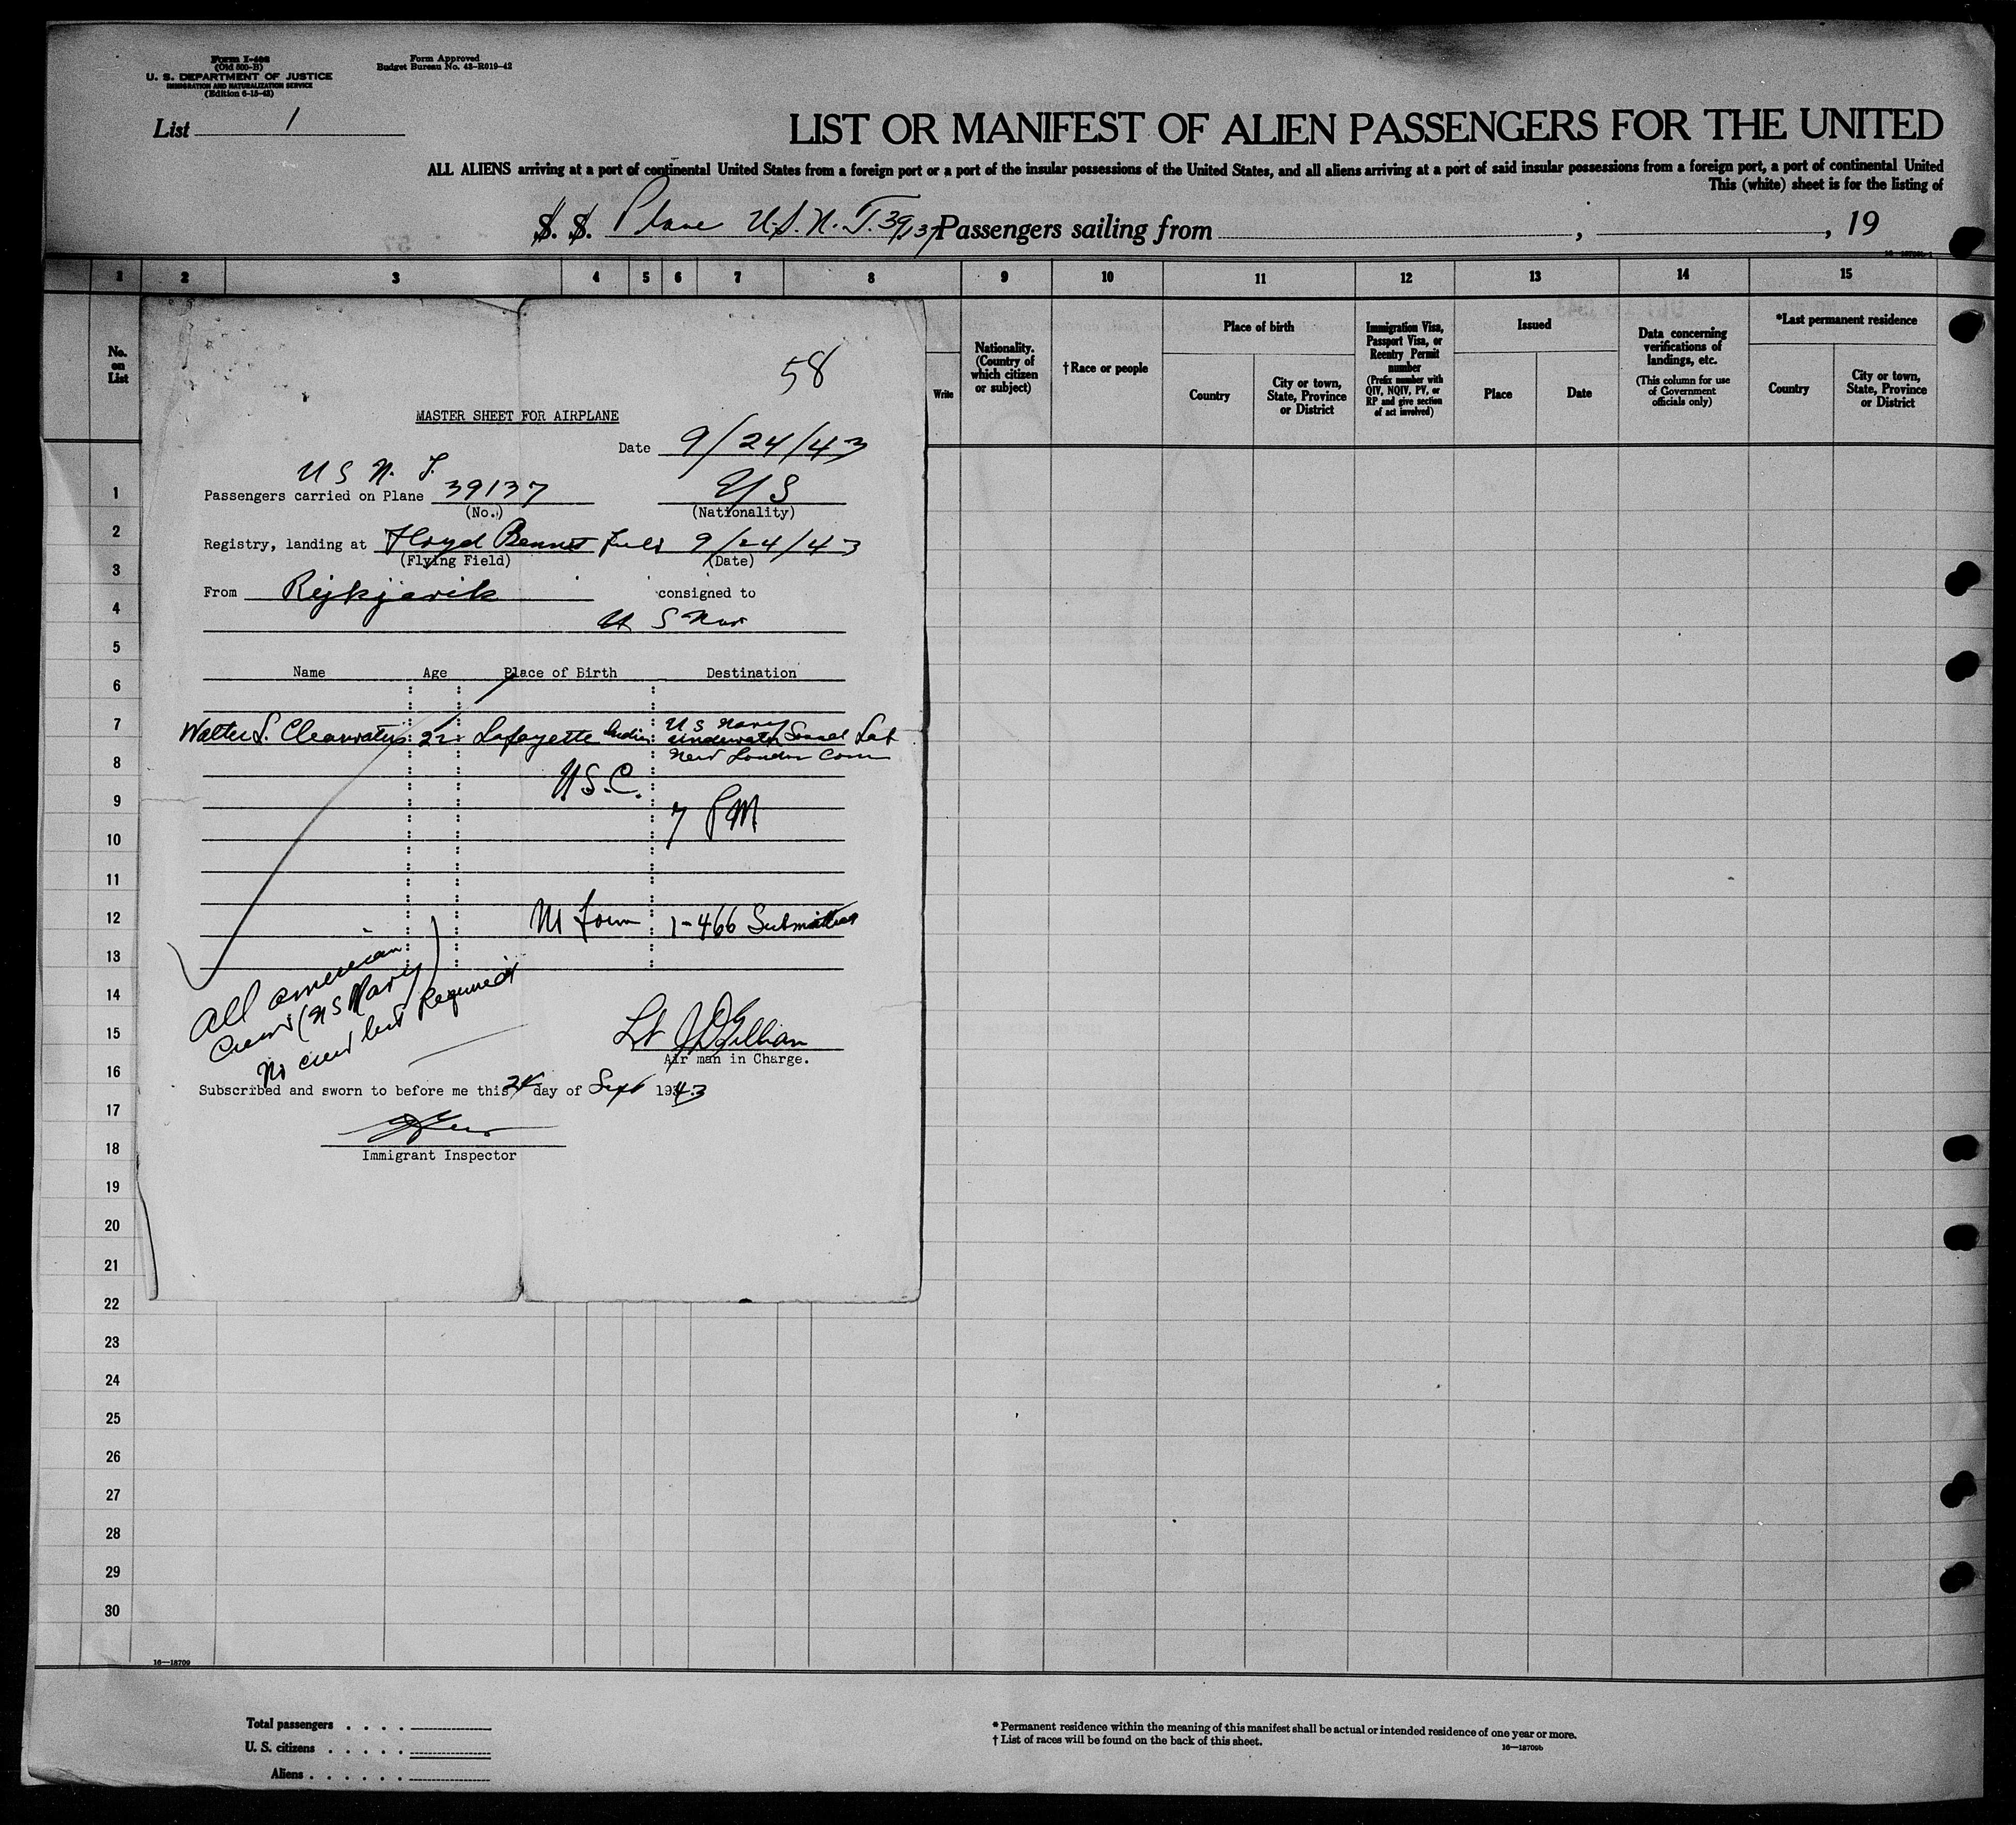 Form I-466
(Old 500-B)
U. S. DEPARTMENT OF JUSTICE
IMMIGRATION AND NATURALIZATION SERVICE
(Edition 6-15-43)
Form Approved
Budget Bureau No. 43-R019-42
List 1
LIST OR MANIFEST OF ALIEN PASSENGERS FOR THE UNITED
ALL ALIENS arriving at a port of continental United States from a foreign port or a port of the insular possessions of the United States, and all aliens arriving at a port of said insular possessions from a foreign port, a port of continental United
This (white) sheet is for the listing of
S. S. Plane U.S.N.T. 39137 Passengers sailing from , , 19
1 2 3 4 5 6 7 8 9 10 11 12 13 14 15
No.
on
List
Write
Nationality.
(Country of
which citizen
or subject)
†Race or people
Place of birth
Country
City or town,
State, Province
or District
Immigration Visa,
Passport Visa, or
Reentry Permit
number
(Prefix number with
QIV, NQIV, PV, or
RP and give section
of act involved)
Issued
Place
Date
Data concerning
verifications of
landings, etc.
(This column for use
of Government
officials only)
*Last permanent residence
Country
City or town,
State, Province
or District
58
MASTER SHEET FOR AIRPLANE
Date 9/24/43
U S N. T.
Passengers carried on Plane 39137 U S
(No.) (Nationality)
Registry, landing at Floyd Bennet Field 9/24/43
(Flying Field) (Date)
From Rejkjavik consigned to
U S Nav
Name Age Place of Birth Destination
Walter S. Clearwaters 22 Lafayette Indiana U S Navy
Underwater Sound Lab
New London Conn
U.S.C.
7 PM
No form I-466 Submitted
All american
Crew (US Navy)
No crew list Required
Lt
Air man in Charge.
Subscribed and sworn to before me this 24 day of Sept 1943
Immigrant Inspector
1
2
3
4
5
6
7
8
9
10
11
12
13
14
15
16
17
18
19
20
21
22
23
24
25
26
27
28
29
30
16—18709
Total passengers . . . .
U. S. citizens . . . . .
Aliens . . . . . .
* Permanent residence within the meaning of this manifest shall be actual or intended residence of one year or more.
† List of races will be found on the back of this sheet.
16—18709b